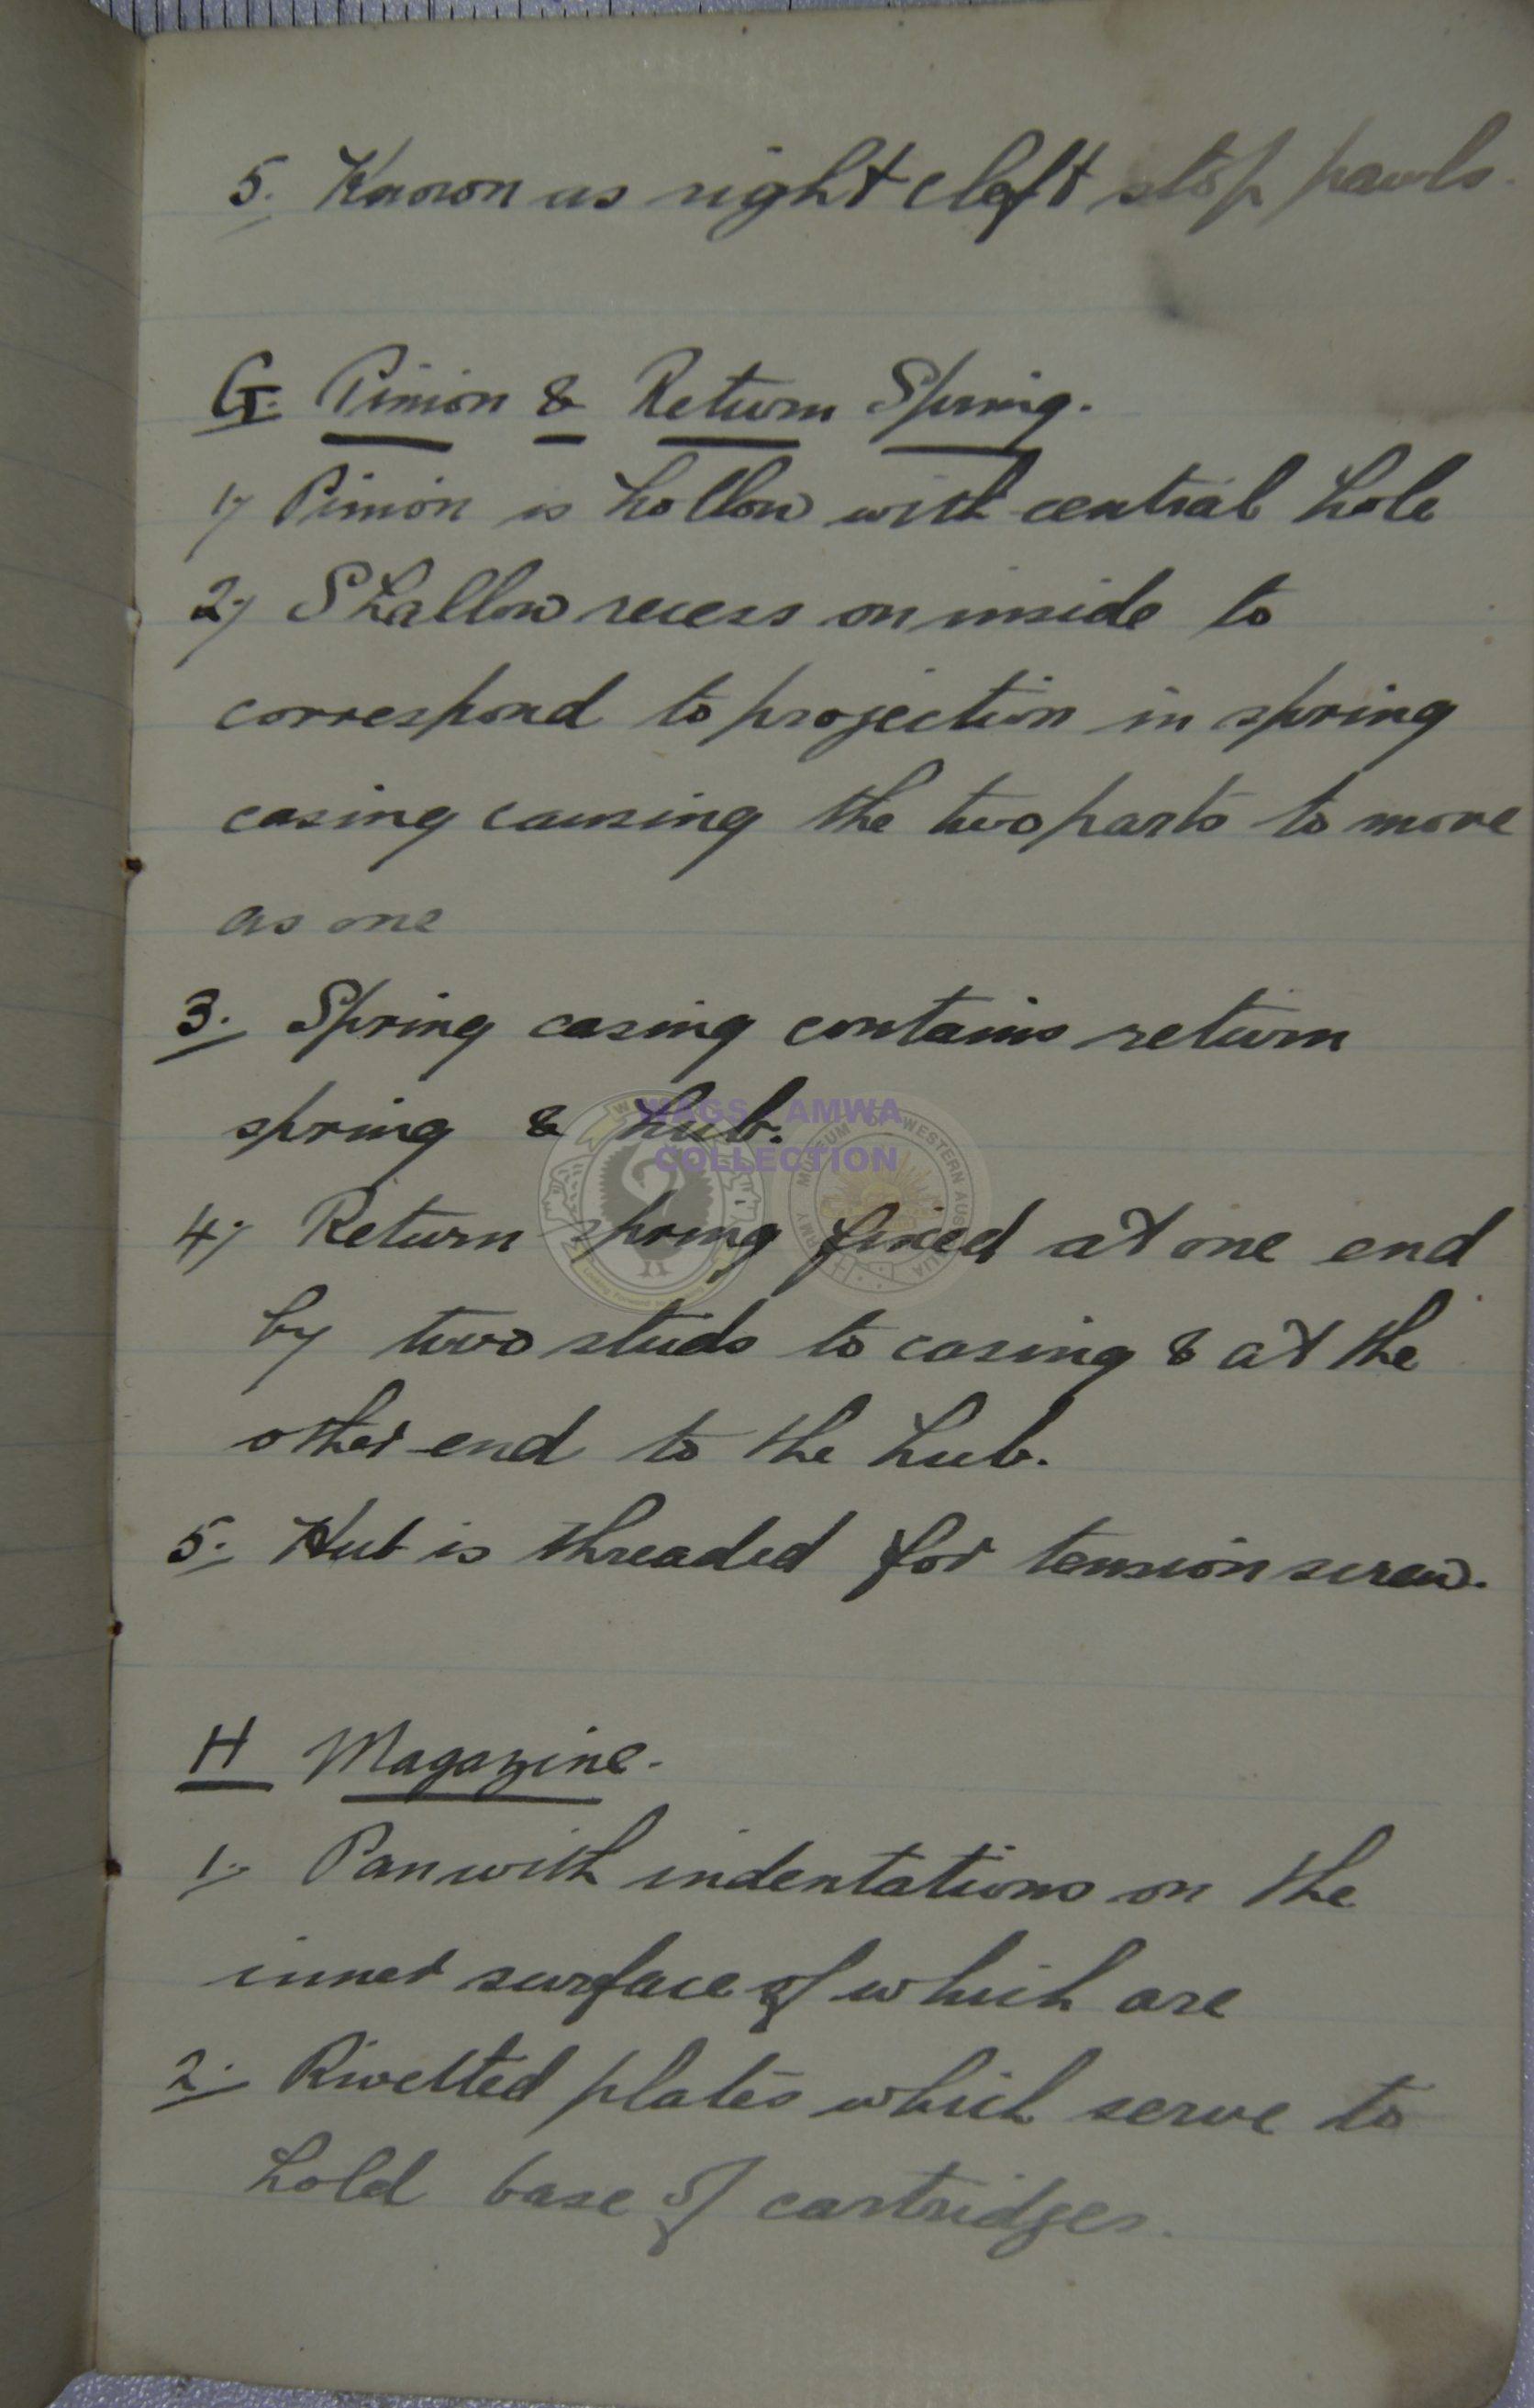 5. Known as right & left stop pawls.
G. Pinion & Return Spring.
1, Pinion is hollow with central hole
2, Shallow recess on inside to
correspond to projection in spring
casing causing the two parts to move
as one
3. Spring casing contains return
spring & hub.
4, Return spring fixed at one end
by two studs to casing & at the
other end to the hub.
5. Hub is threaded for tension screw.
H Magazine.
1. Pan with indentations on the
inner surface of which are
2. Rivetted plates which serve to
hold base of cartridges.
WAGS AMWA
COLLECTION
MUSEUM OF WESTERN AUSTRALIA